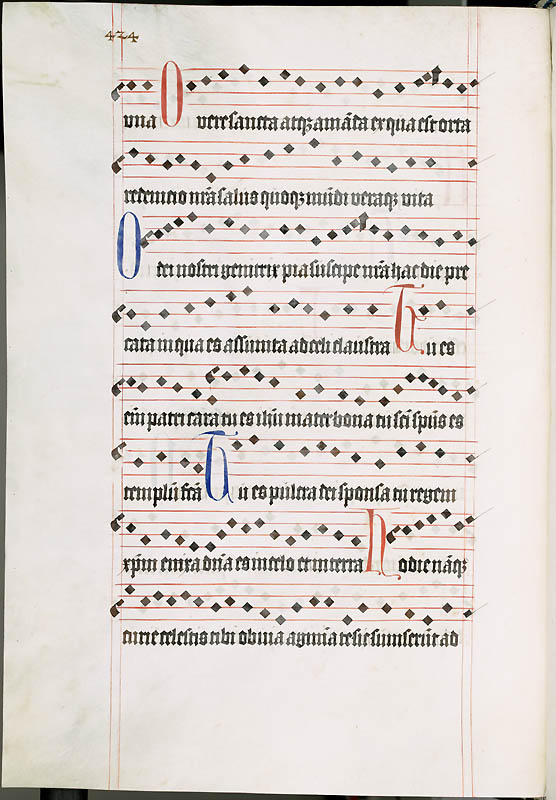 424
vna O vere sancta atqꝫ amāda ex qua est orta
redempcio nr̄a salus quoqꝫ mūdi veraqꝫ vita
O dei nostri genitrix pia suscipe nr̄a hac die pre
cata in qua es assumta ad celi claustra Tu es
em̄ patri cara tu es ihū mater bona tu sc̄i spūs es
templū fc̄a Tu es pulcra dei sponsa tu regem
xp̄m enixa dn̄a es in celo et in terra Hodie nāqꝫ
curie celestis tibi obuia agmīa te sūt ad